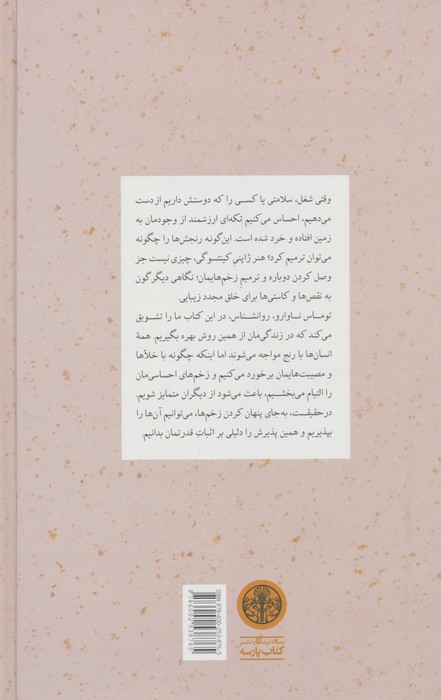 وقتی شغل، سلامتی یا کسی را که دوستش داریم از دست
می‌دهیم، احساس می‌کنیم تکه‌ای ارزشمند از وجودمان به
زمین افتاده و خرد شده است. این‌گونه رنجش‌ها را چگونه
می‌توان ترمیم کرد؟ هنر ژاپنیِ کینتسوگی، چیزی نیست جز
وصل کردن دوباره و ترمیمِ زخم‌هایمان؛ نگاهی دیگرگون به
نقص‌ها و کاستی‌ها برای خلق مجدد زیبایی.
توماس ناوارو، روانشناس، در این کتاب ما را تشویق
می‌کند که در زندگی‌مان از همین روش بهره بگیریم. همهٔ
انسان‌ها با رنج مواجه می‌شوند اما اینکه چگونه با خلأها
و مصیبت‌هایمان برخورد می‌کنیم و زخم‌های احساسی‌مان
را التیام می‌بخشیم، باعث می‌شود از دیگران متمایز شویم.
درحقیقت، به‌جای پنهان کردن زخم‌ها، می‌توانیم آن‌ها را
بپذیریم و همین پذیرش را دلیلی بر اثباتِ قدرتمان بدانیم.
کتاب پارسه